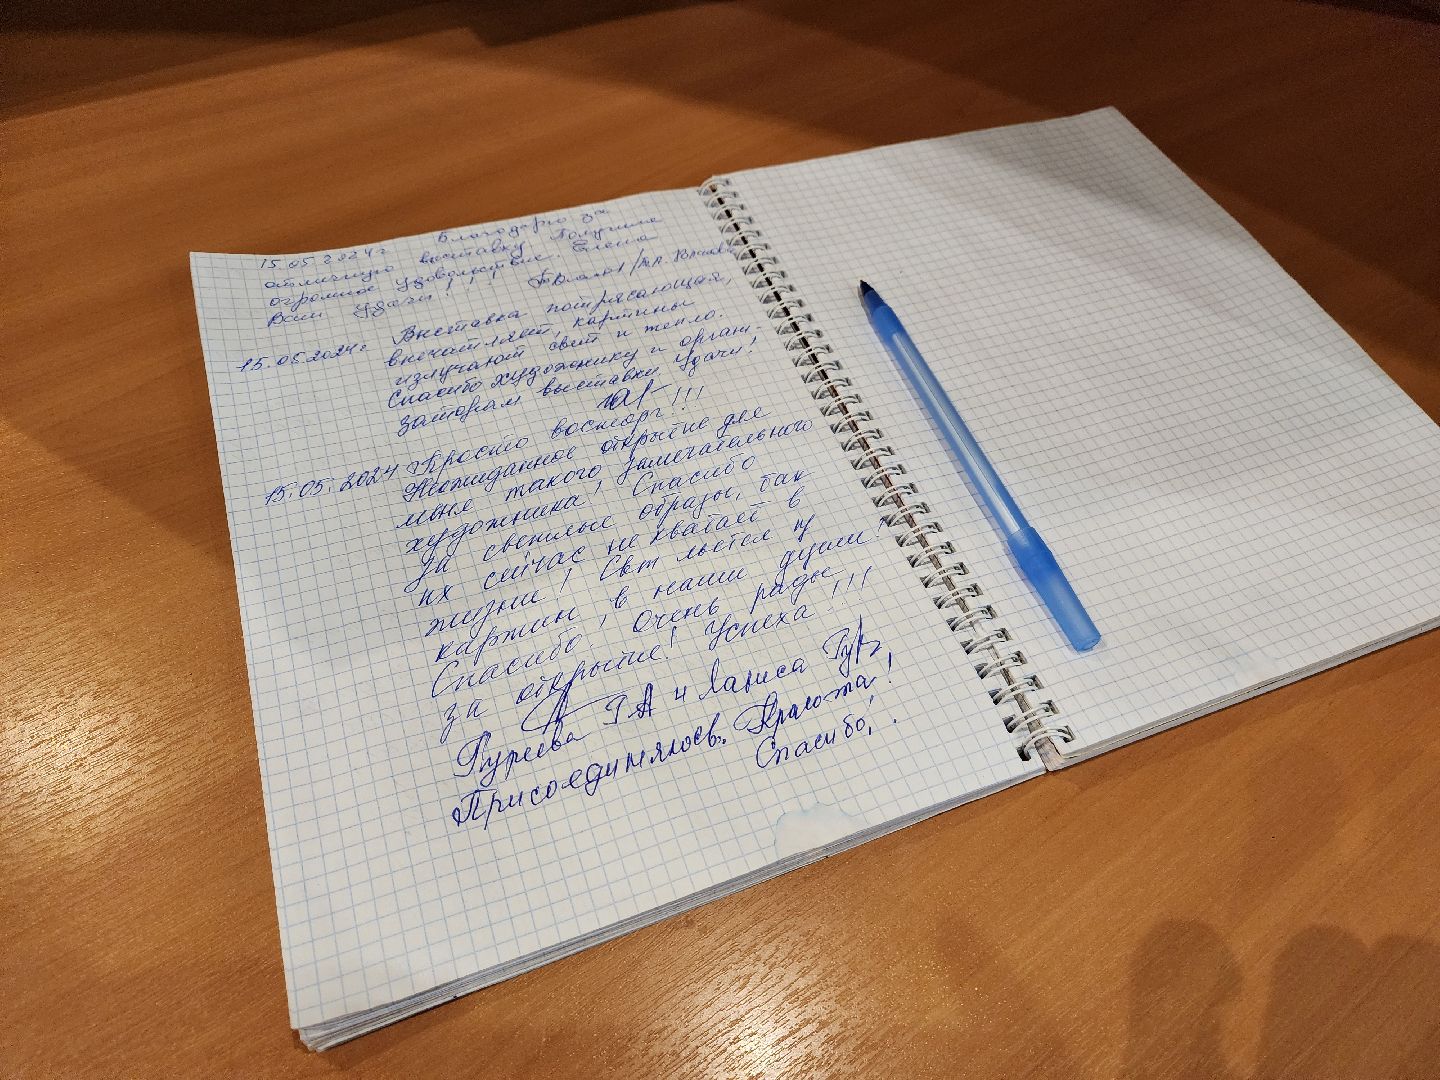 15.05.2024г. Благодарю за
отличную выставку. Получила
огромное удовольствие. Елена
Вам удачи!!!
15.05.2024г. Выставка потрясающая,
впечатляет, картины
излучают свет и тепло.
Спасибо художнику и органи-
заторам выставки. Удачи!
15.05.2024 Просто восторг!!!
Неожиданное открытие для
меня такого замечательного
художника! Спасибо
за светлые образы, так
их сейчас не хватает в
жизни! Свет льется из
картин в наши души!
Спасибо! Очень рады
за открытие! Успеха!!!
Гуреева и Лариса
Присоединяюсь. Красота!
Спасибо!